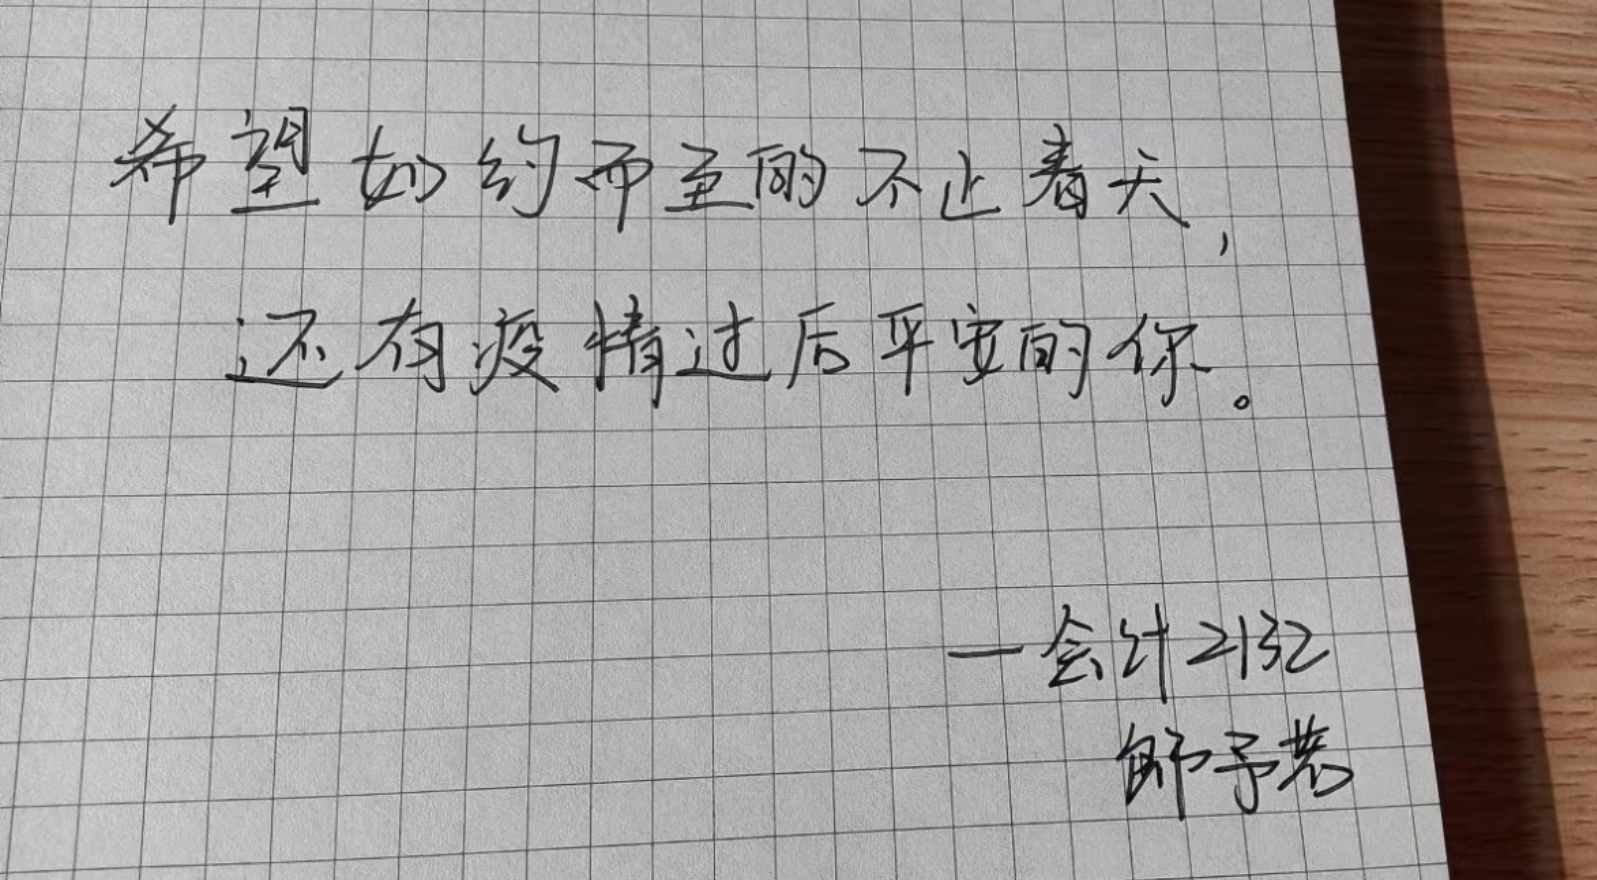 希望如约而至的不止春天,
还有疫情过后平安的你。
—会计2132
师予